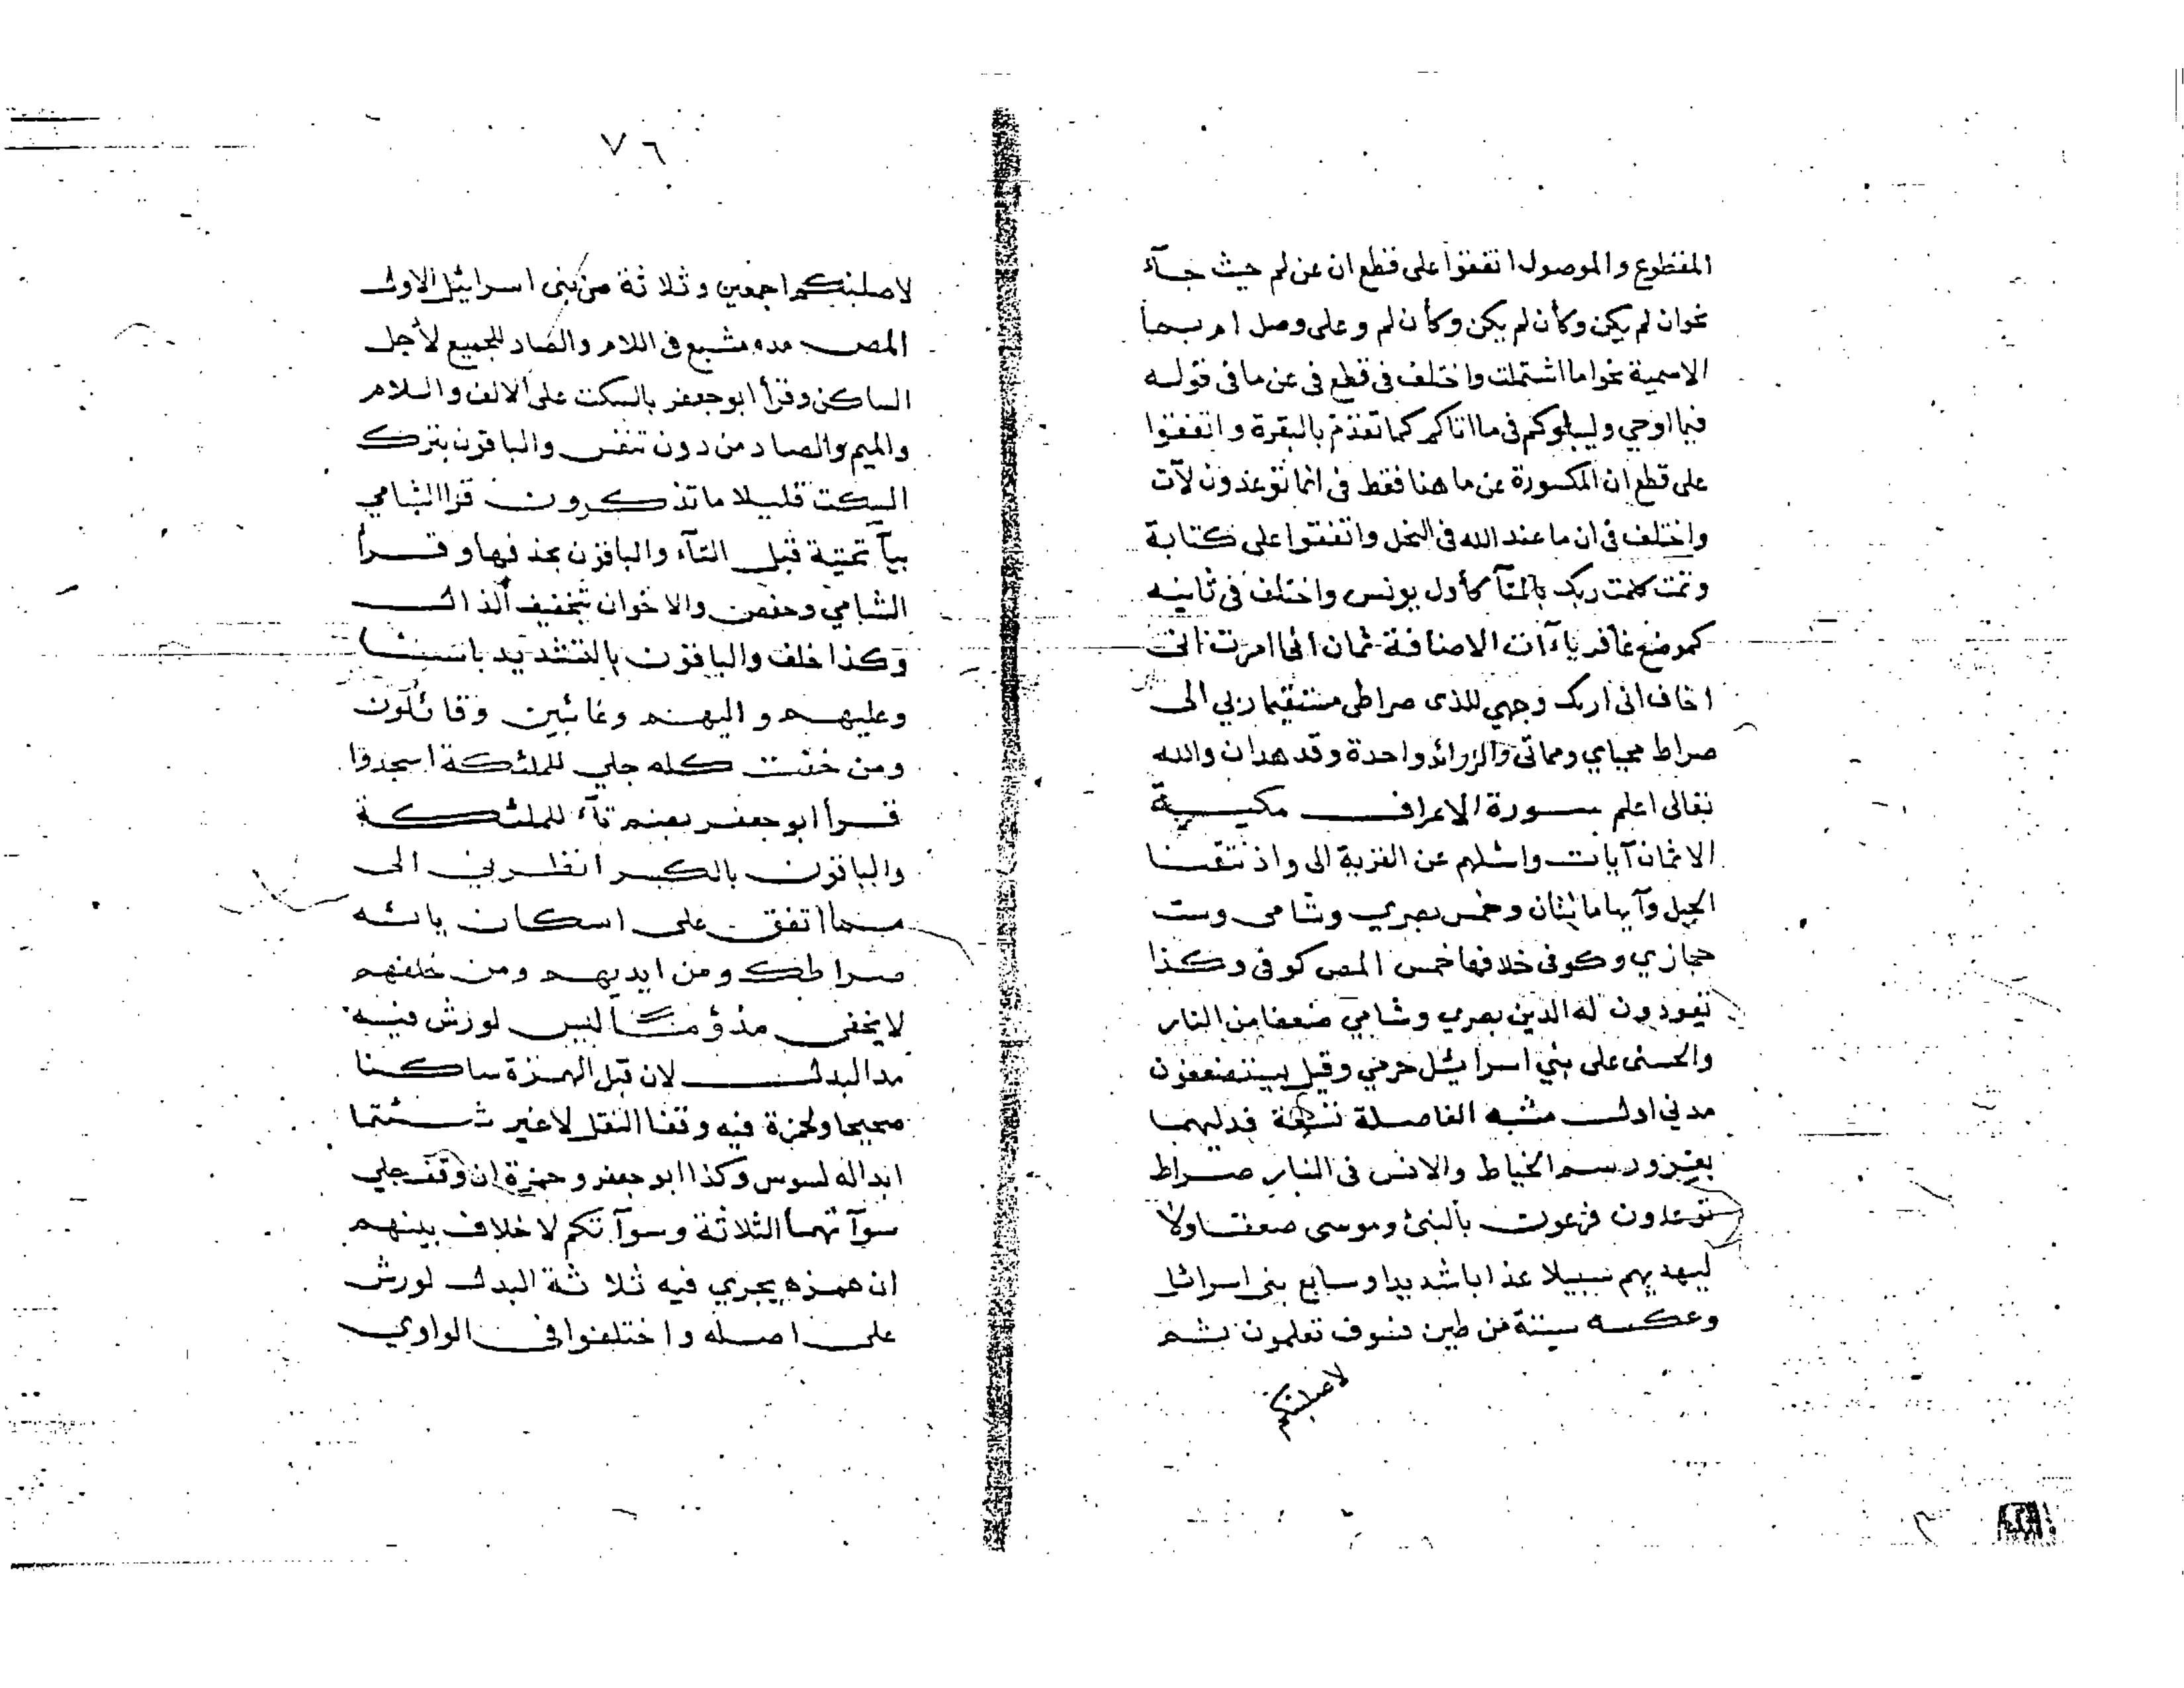 المقطوع والموصول اتفقوا على قطع ان عن لم حيث جآء
نحوان لم يكن وكأن لم يكن وكأن لم وعلى وصل ام بما
الاسمية نحواما اشتملت واختلف فى قطع فى عن ما فى قوله
فيما اوحي وليبلوكم فى ما اتاكم كما تقدم بالبقرة واتفقوا
على قطع ان المكسورة عن ما هنا فقط فى انما توعدون لآت
واختلف فى ان ما عند الله فى النحل واتفقوا على كتابة
وتمت كلمت ربك بالتآ كأول يونس واختلف فى ثانيه
كموضع غافر ياءآت الاضافة ثمان انى امرت انى
اخاف انى اريك وجهي للذى صراطى مستقيما ربي الى
صراط محياي ومماتى والزوائد واحدة وقد هدان والله
تعالى اعلم سورة الاعراف مكية
الاثمان آيات واسئلهم عن القرية الى واذ نتقنا
الجبل وآيها مائتان وخمس بصري وشامى وست
حجازي وكوفى خلافها خمس المص كوفى وكذا
تعودون له الدين بصري وشامي ضعفا من النار
والحسنى على بني اسرائيل حرمي وقيل يستضعفون
مدني اول مشبه الفاصلة تسعة فدليهما
بغرور سم الخياط والانس فى النار صراط
توعدون فرعون بالسنين وموسى صعقا ولا
ليهديهم سبيلا عذابا شديدا وسابع بنى اسرائيل
وعكسه ستة من طين فسوف تعلمون ثم
لاصلبنكم
٧٦
لاصلبنكم اجمعين وثلاثة من بنى اسرائيل الاول
المص مده مشبع فى اللام والصاد للجميع لأجل
الساكن وقرأ ابو جعفر بالسكت على الالف واللام
والميم والصاد من دون تنفس والباقون بترك
السكت قليلا ما تذكرون قرا الشامي
بيآ تحتية قبل التآء والباقون بحذفها وقرأ
الشامي وحفص والاخوان بتخفيف الذال
وكذا خلف والباقون بالتشديد باسنا
وعليهم واليهم وغائبين وقائلون
ومن خفت كله جلي للملئكة اسجدوا
قرأ ابو جعفر بضم تآء للملئكة
والباقون بالكسر انظرني الى
مما اتفق على اسكان يائه
صراطك ومن ايديهم ومن خلفهم
لا يخفى مذؤما ليس لورش فيه
مد البدل لان قبل الهمزة ساكنا
صحيحا ولحمزة فيه وقفا النقل لا غير شئتما
ابداله لسوس وكذا ابو جعفر وحمزة ان وقف جلي
سوآتهما الثلاثة وسوآتكم لا خلاف بينهم
ان همزه يجري فيه ثلاثة البدل لورش
على اصله واختلفوا فى الواوي